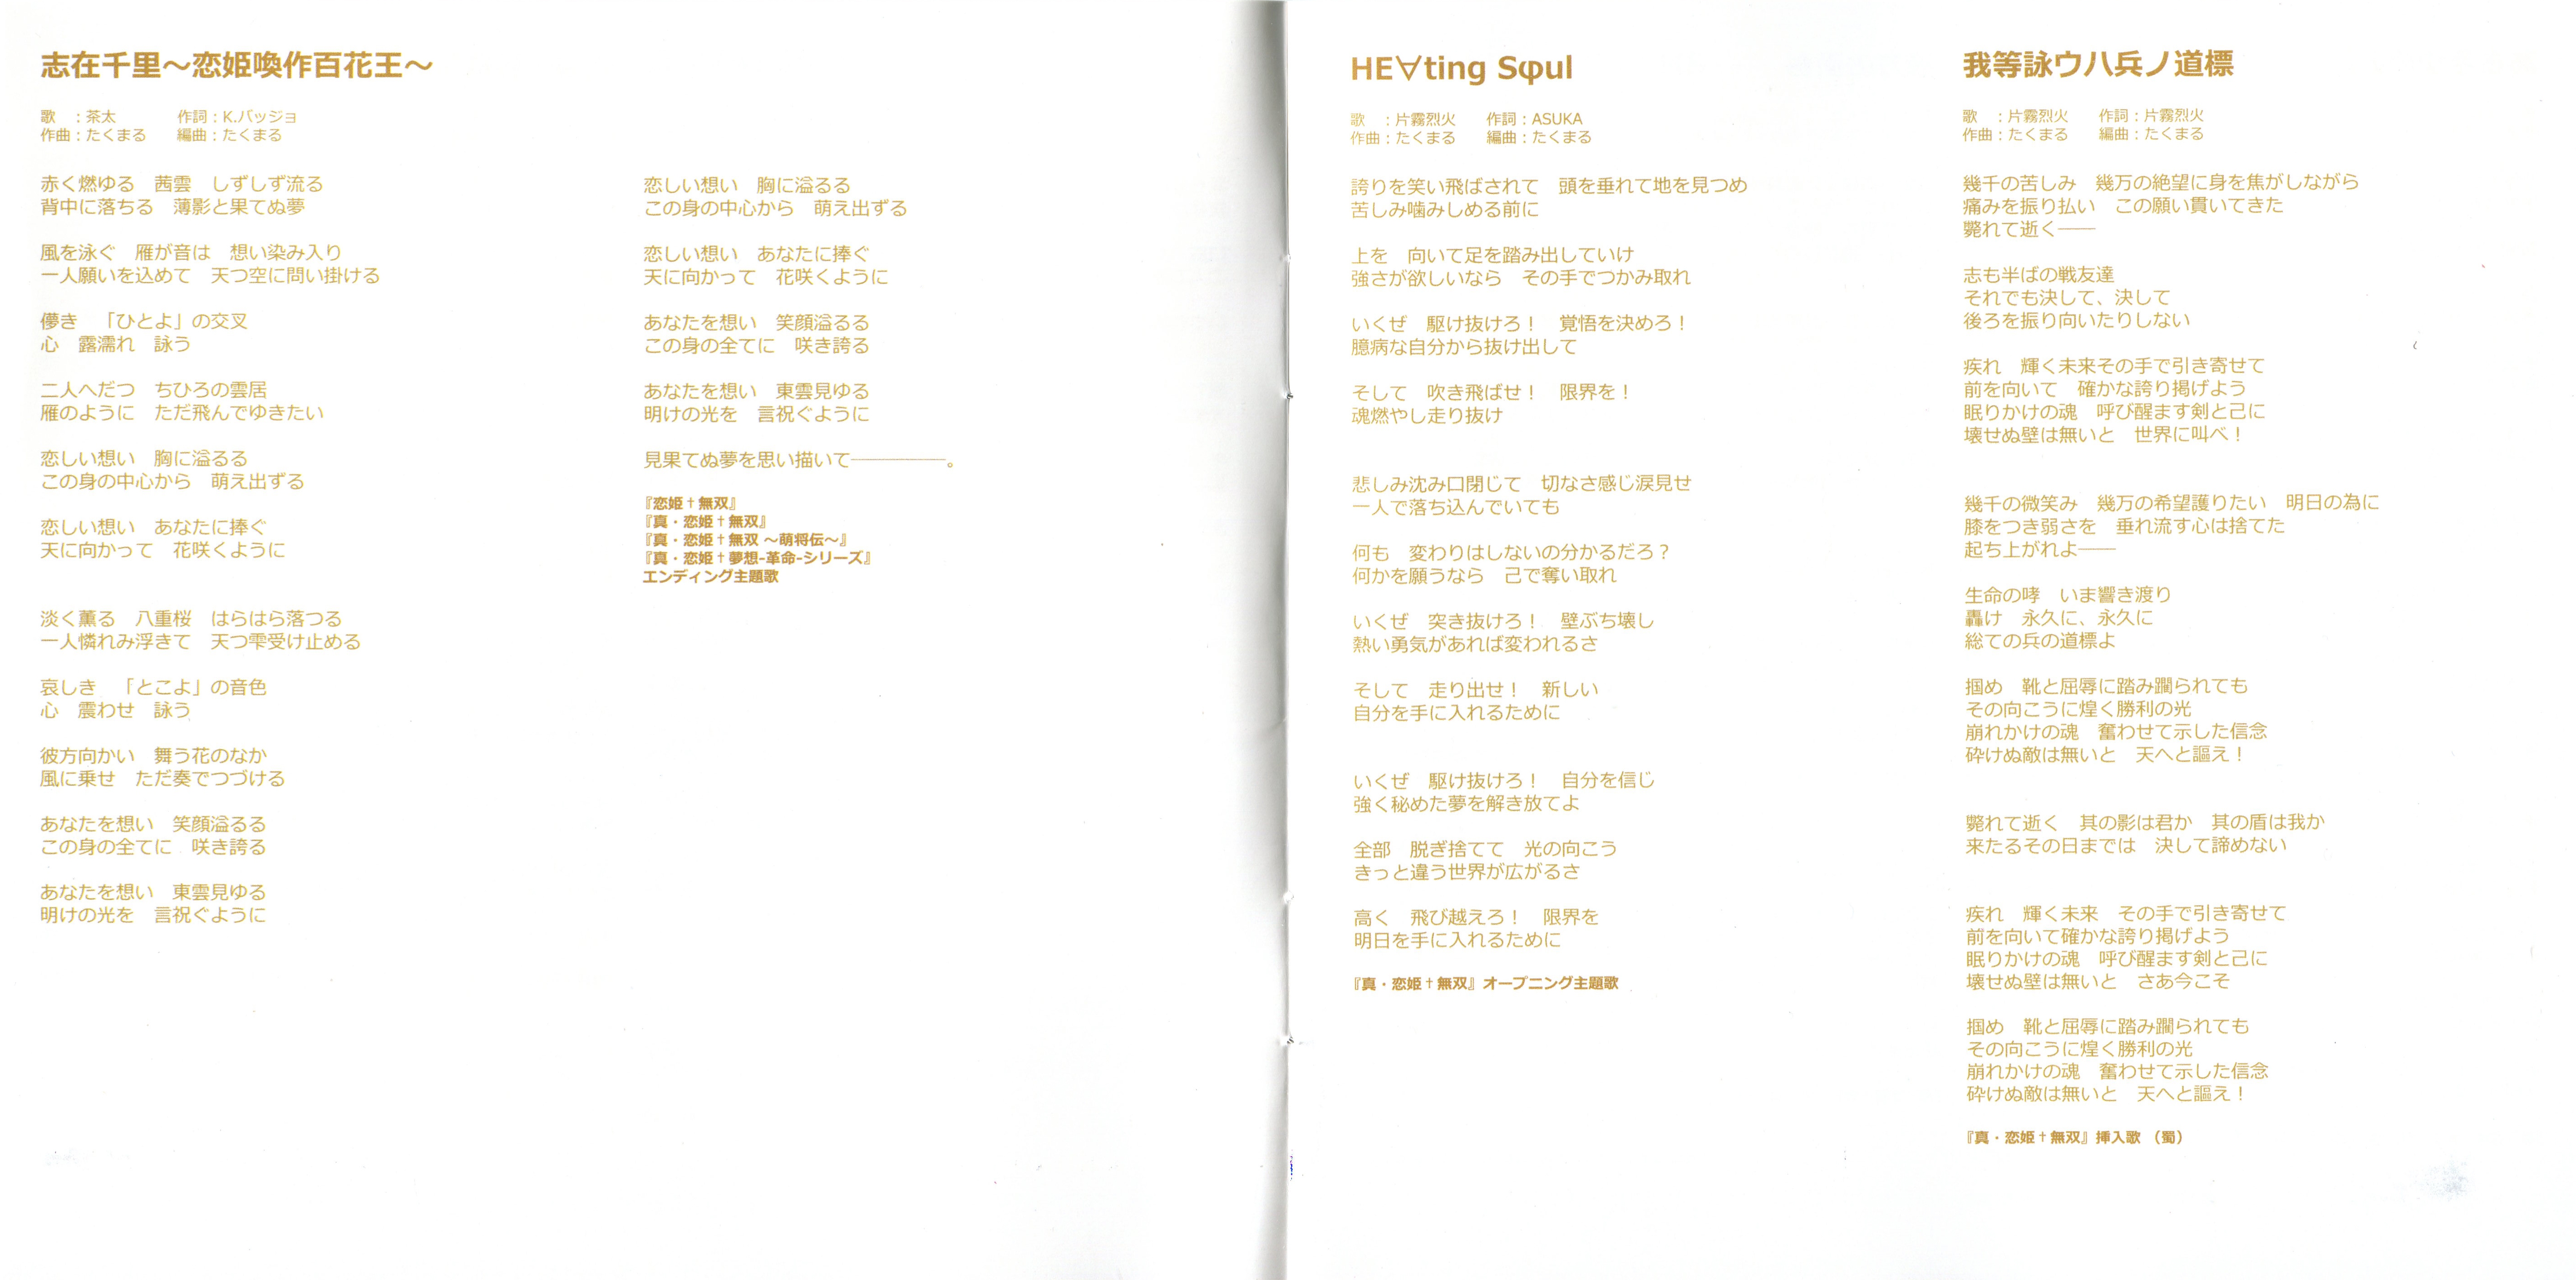 志在千里～恋姫喚作百花王～
歌　：茶太　　　　作詞：K.バッジョ
作曲：たくまる　　編曲：たくまる
赤く燃ゆる　茜雲　しずしず流る
背中に落ちる　薄影と果てぬ夢
風を泳ぐ　雁が音は　想い染み入り
一人願いを込めて　天つ空に問い掛ける
儚き　「ひとよ」の交叉
心　露濡れ　詠う
二人へだつ　ちひろの雲居
雁のように　ただ飛んでゆきたい
恋しい想い　胸に溢るる
この身の中心から　萌え出ずる
恋しい想い　あなたに捧ぐ
天に向かって　花咲くように
淡く薫る　八重桜　はらはら落つる
一人憐れみ浮きて　天つ雫受け止める
哀しき　「とこよ」の音色
心　震わせ　詠う
彼方向かい　舞う花のなか
風に乗せ　ただ奏でつづける
あなたを想い　笑顔溢るる
この身の全てに　咲き誇る
あなたを想い　東雲見ゆる
明けの光を　言祝ぐように
恋しい想い　胸に溢るる
この身の中心から　萌え出ずる
恋しい想い　あなたに捧ぐ
天に向かって　花咲くように
あなたを想い　笑顔溢るる
この身の全てに　咲き誇る
あなたを想い　東雲見ゆる
明けの光を　言祝ぐように
見果てぬ夢を思い描いて―――――。
『恋姫†無双』
『真・恋姫†無双』
『真・恋姫†無双 ～萌将伝～』
『真・恋姫†夢想-革命-シリーズ』
エンディング主題歌
HE∀ting Sφul
歌　：片霧烈火　　作詞：ASUKA
作曲：たくまる　　編曲：たくまる
誇りを笑い飛ばされて　頭を垂れて地を見つめ
苦しみ噛みしめる前に
上を　向いて足を踏み出していけ
強さが欲しいなら　その手でつかみ取れ
いくぜ　駆け抜けろ！　覚悟を決めろ！
臆病な自分から抜け出して
そして　吹き飛ばせ！　限界を！
魂燃やし走り抜け
悲しみ沈み口閉じて　切なさ感じ涙見せ
一人で落ち込んでいても
何も　変わりはしないの分かるだろ？
何かを願うなら　己で奪い取れ
いくぜ　突き抜けろ！　壁ぶち壊し
熱い勇気があれば変われるさ
そして　走り出せ！　新しい
自分を手に入れるために
いくぜ　駆け抜けろ！　自分を信じ
強く秘めた夢を解き放てよ
全部　脱ぎ捨てて　光の向こう
きっと違う世界が広がるさ
高く　飛び越えろ！　限界を
明日を手に入れるために
『真・恋姫†無双』オープニング主題歌
我等詠ウハ兵ノ道標
歌　：片霧烈火　　作詞：片霧烈火
作曲：たくまる　　編曲：たくまる
幾千の苦しみ　幾万の絶望に身を焦がしながら
痛みを振り払い　この願い貫いてきた
斃れて逝く――
志も半ばの戦友達
それでも決して、決して
後ろを振り向いたりしない
疾れ　輝く未来その手で引き寄せて
前を向いて　確かな誇り掲げよう
眠りかけの魂　呼び醒ます剣と己に
壊せぬ壁は無いと　世界に叫べ！
幾千の微笑み　幾万の希望護りたい　明日の為に
膝をつき弱さを　垂れ流す心は捨てた
起ち上がれよ――
生命の哮　いま響き渡り
轟け　永久に、永久に
総ての兵の道標よ
掴め　靴と屈辱に踏み躙られても
その向こうに煌く勝利の光
崩れかけの魂　奮わせて示した信念
砕けぬ敵は無いと　天へと謳え！
斃れて逝く　其の影は君か　其の盾は我か
来たるその日までは　決して諦めない
疾れ　輝く未来　その手で引き寄せて
前を向いて確かな誇り掲げよう
眠りかけの魂　呼び醒ます剣と己に
壊せぬ壁は無いと　さあ今こそ
掴め　靴と屈辱に踏み躙られても
その向こうに煌く勝利の光
崩れかけの魂　奮わせて示した信念
砕けぬ敵は無いと　天へと謳え！
『真・恋姫†無双』挿入歌 （蜀）